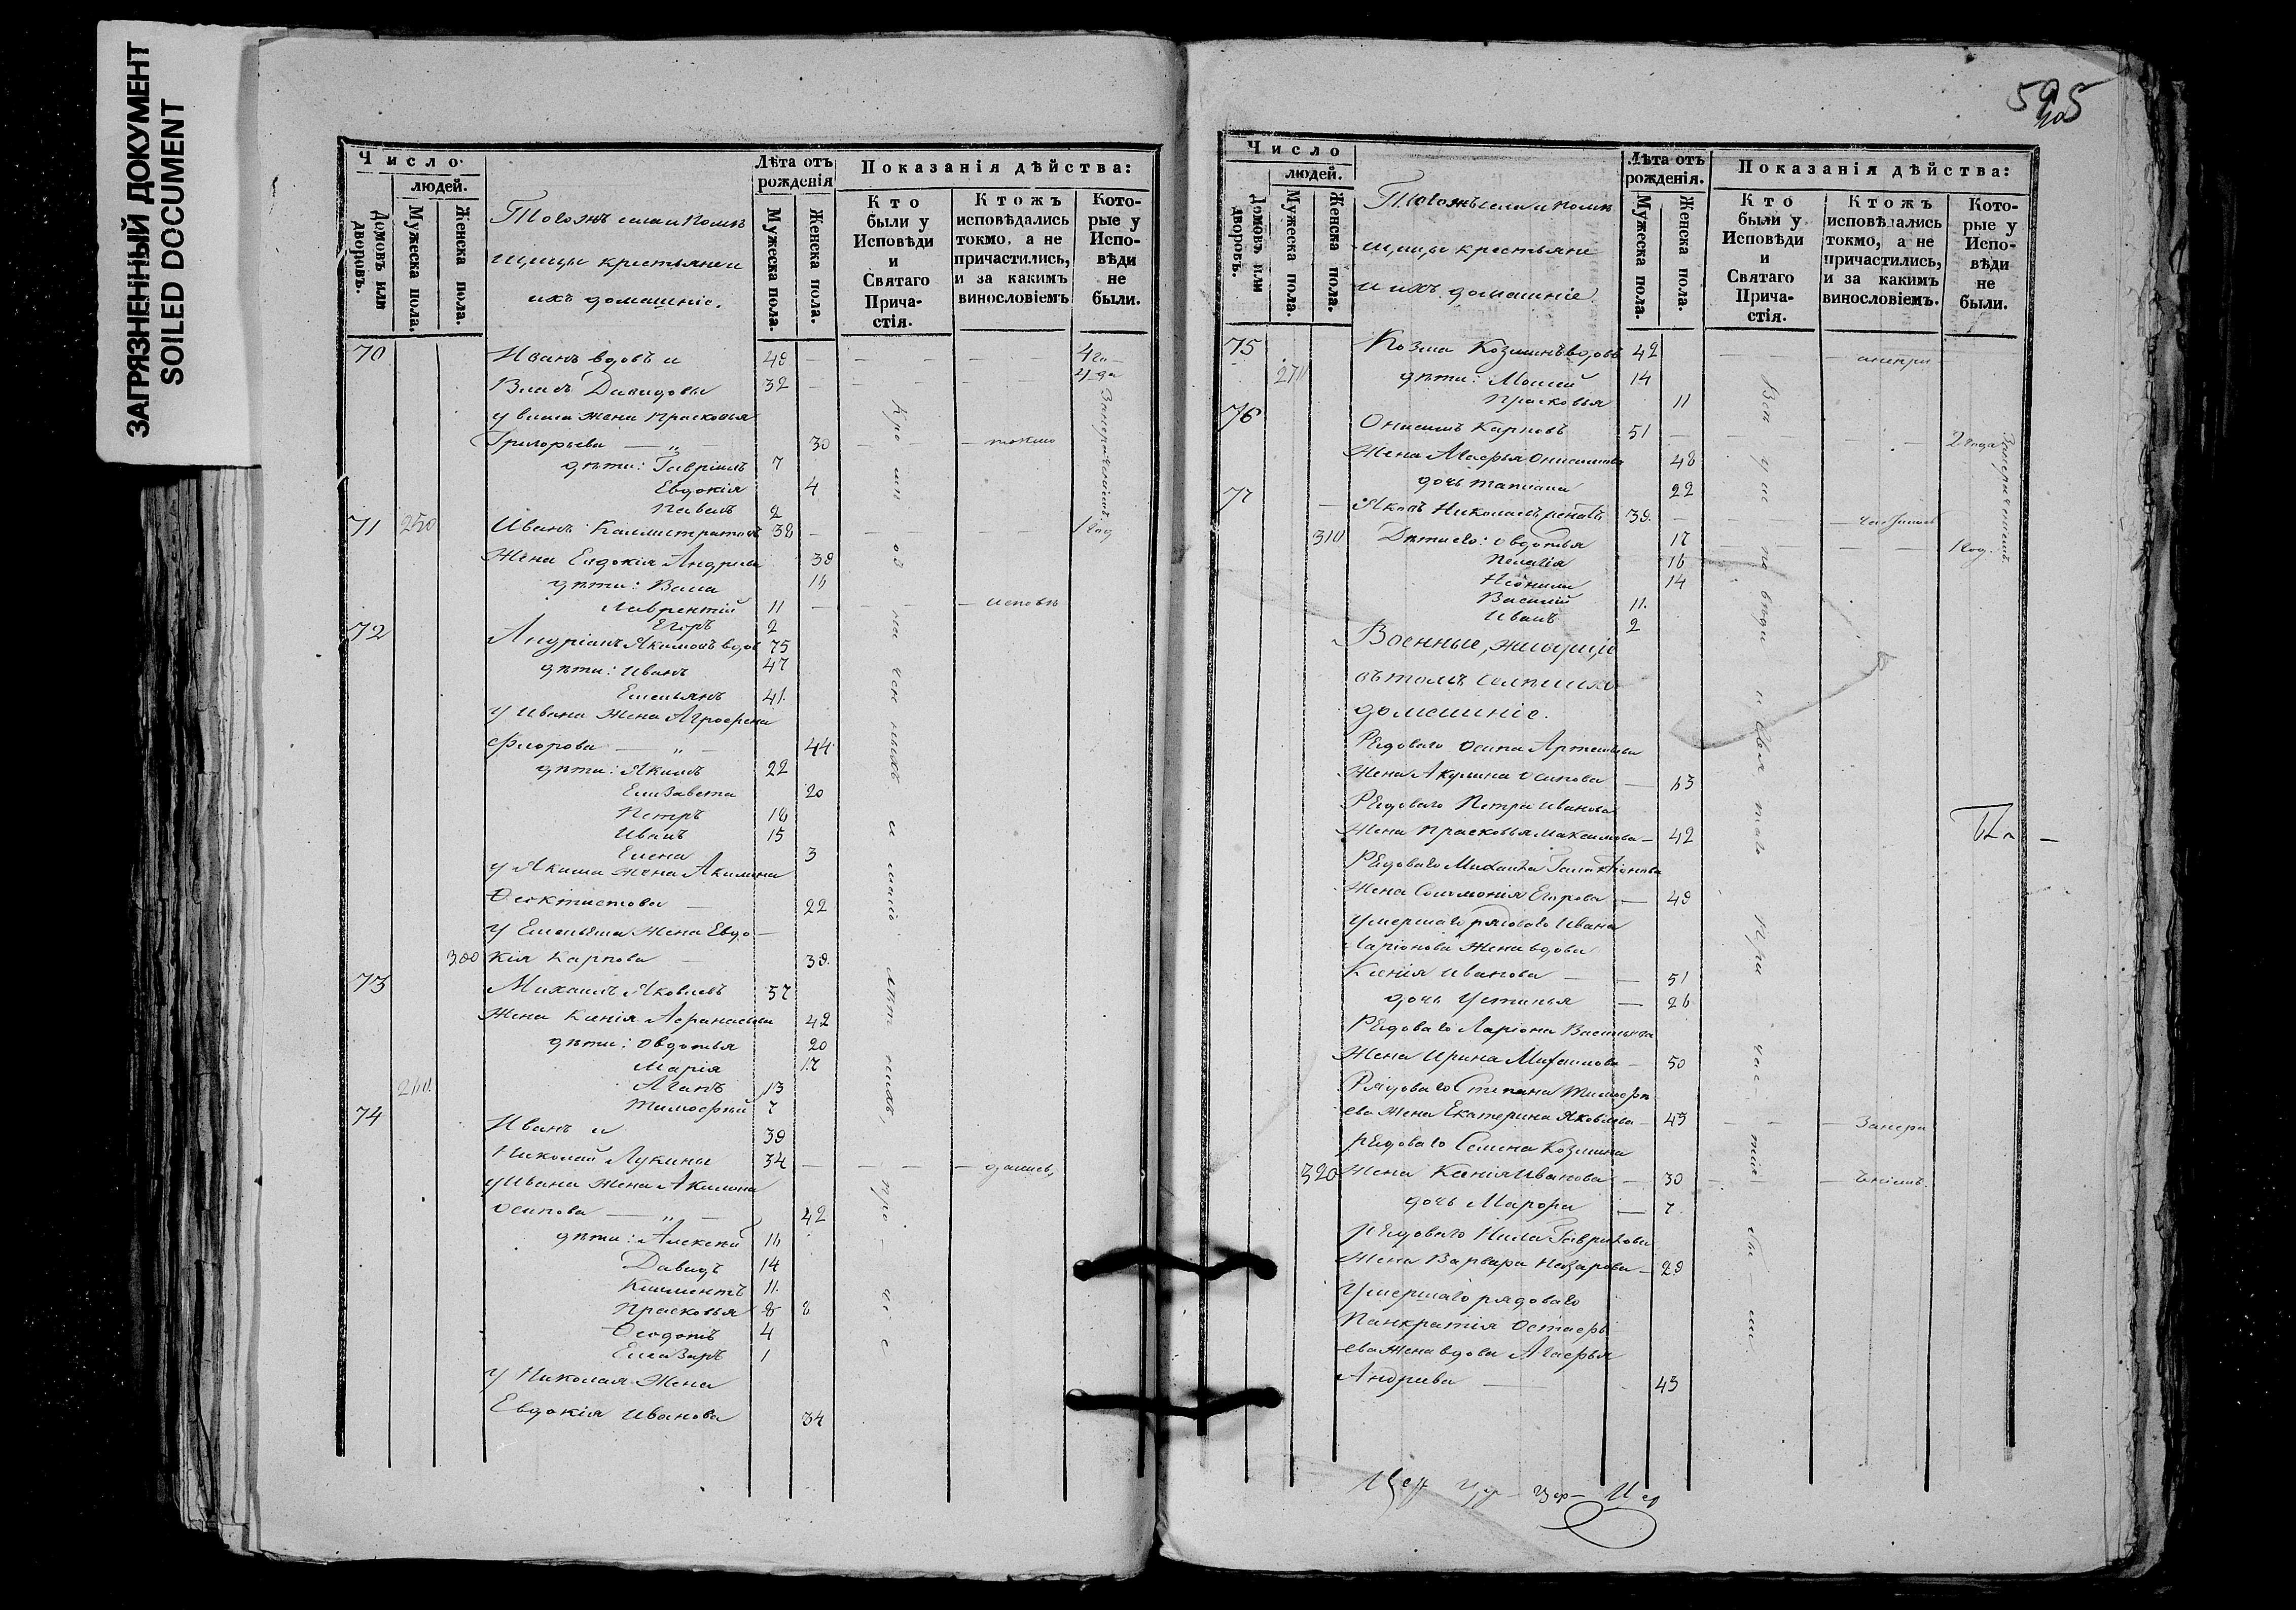 ЗАГРЯЗНЕННЫЙ ДОКУМЕНТ
SOILED DOCUMENT
Число
людей.
Домовъ или дворовъ.
Мужеска пола.
Женска пола.
Тогожъ села и помѣ
щицы крестьяне и
ихъ домашніе.
Лѣта отъ рожденія
Мужеска пола.
Женска пола.
Показанія дѣйства:
Кто были у Исповѣди и Святаго Прича-стія.
Ктожъ исповѣдались токмо, а не причастились, и за какимъ винословіемъ
Кото-рые у Испо-вѣди не были.
70 Иванъ вдовъ и 48
Власъ Давидовы 32
у Власа жена Прасковья
Григорьева 30 токмо
дѣти: Гавріилъ 7
Евдокія 4
Павелъ 2
71 250 Иванъ Каллистратовъ 38 1 год
Жена Евдокія Андреева 38
дѣти: Васса 16
Лаврентій 11 исповѣ
Егоръ 2
72 Андріанъ Якимовъ вдов 75
дѣти: Иванъ 47
Емельянъ 41
у Ивана жена Агрофена
Фролова 44
дѣти: Якимъ 22
Елизавета 20
Петръ 18
Иванъ 15
Елена 3
у Якима жена Акилина
Феоктистова 22
у Емельяна жена Евдо-
300 кія Карпова 38
73 Михаилъ Яковлевъ 57
Жена Ксенія Афанасьева 42
дѣти: Овдотья 20
Марія 17
260 Аганъ 13
Тимофей 7
74 Иванъ и 39
Николай Лукины 34
у Ивана жена Акилина
Осипова 42
дѣти: Алексѣй 16
Давидъ 14
Климентъ 11
Прасковья 8 8
Феодотъ 4
Елизаръ 1
у Николая жена
Евдокія Иванова 34
595
Число
людей.
Домовъ или дворовъ.
Мужеска пола.
Женска пола.
Тогожъ села и помѣ
щицы крестьяне
и ихъ домашніе.
Лѣта отъ рожденія.
Мужеска пола.
Женска пола.
Показанія дѣйства:
Кто были у Исповѣди и Святаго Прича-стія.
Ктожъ исповѣдались токмо, а не причастились, и за какимъ винословіемъ.
Кото-рые у Испо-вѣди не были.
75 Козма Козминъ вдовъ 42
дѣти: Моисей 14
Прасковья 11
76 Онисимъ Карповъ 51 2 года
Жена Агафья Онисимова 48
дочь Татіана 22
77 Яковъ Николаевъ 39
310 Дѣти его: Овдотья 17 1 год.
Пелагія 16
Неонила 14
Василій 11
Иванъ 2
Военные, жиющіе
въ томъ селѣ и ихъ
домашніе.
Рядоваго Осипа Артемьева
Жена Акулина Осипова 63
Рядоваго Петра Иванова
Жена Прасковья Максимова 42
Рядоваго Михаила Галактіонова
Жена Соломонія Егорова 49
Умершаго рядоваго Ивана
Ларіонова жена вдова
Ксенія Иванова 51
дочь Устинья 26
Рядоваго Ларіона Васильева
Жена Ирина Михайлова 50
Рядоваго Степана Тимофе
ева жена Екатерина Яковлева 43
рядоваго Семена Козмина
320 Жена Ксенія Иванова 30
дочь Марфа 7
рядоваго Нила Гаврилова
Жена Варвара Назарова 29
Умершаго рядоваго
Панкратія Остафь
ева жена вдова Агафья
Андреева 43